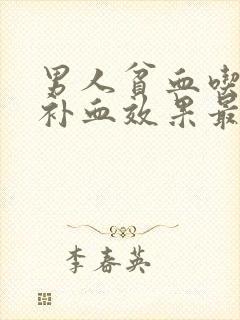 男人贫血喫
补血效果最
李春英